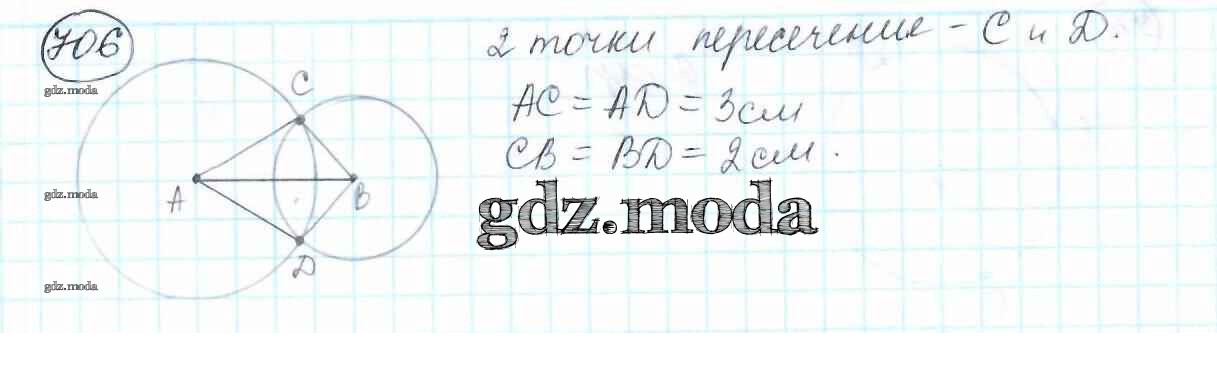 706
2 точки пересечения - C и D.
AC = AD = 3 см
CB = BD = 2 см.
gdz.moda
C
A
B
D
gdz.moda
gdz.moda
gdz.moda